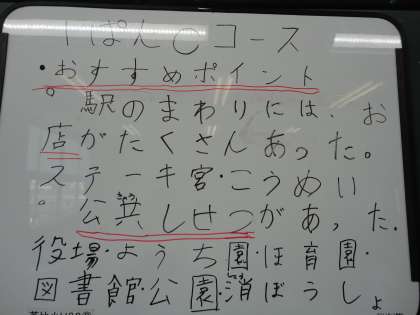 1ぱん〇コース
・おすすめポイント
。駅のまわりには、お
店がたくさんあった。
ステーキ宮・こうめい
。公共しせつがあった。
役場・ようち園・ほ育園・
図書館・公園・消ぼうしょ